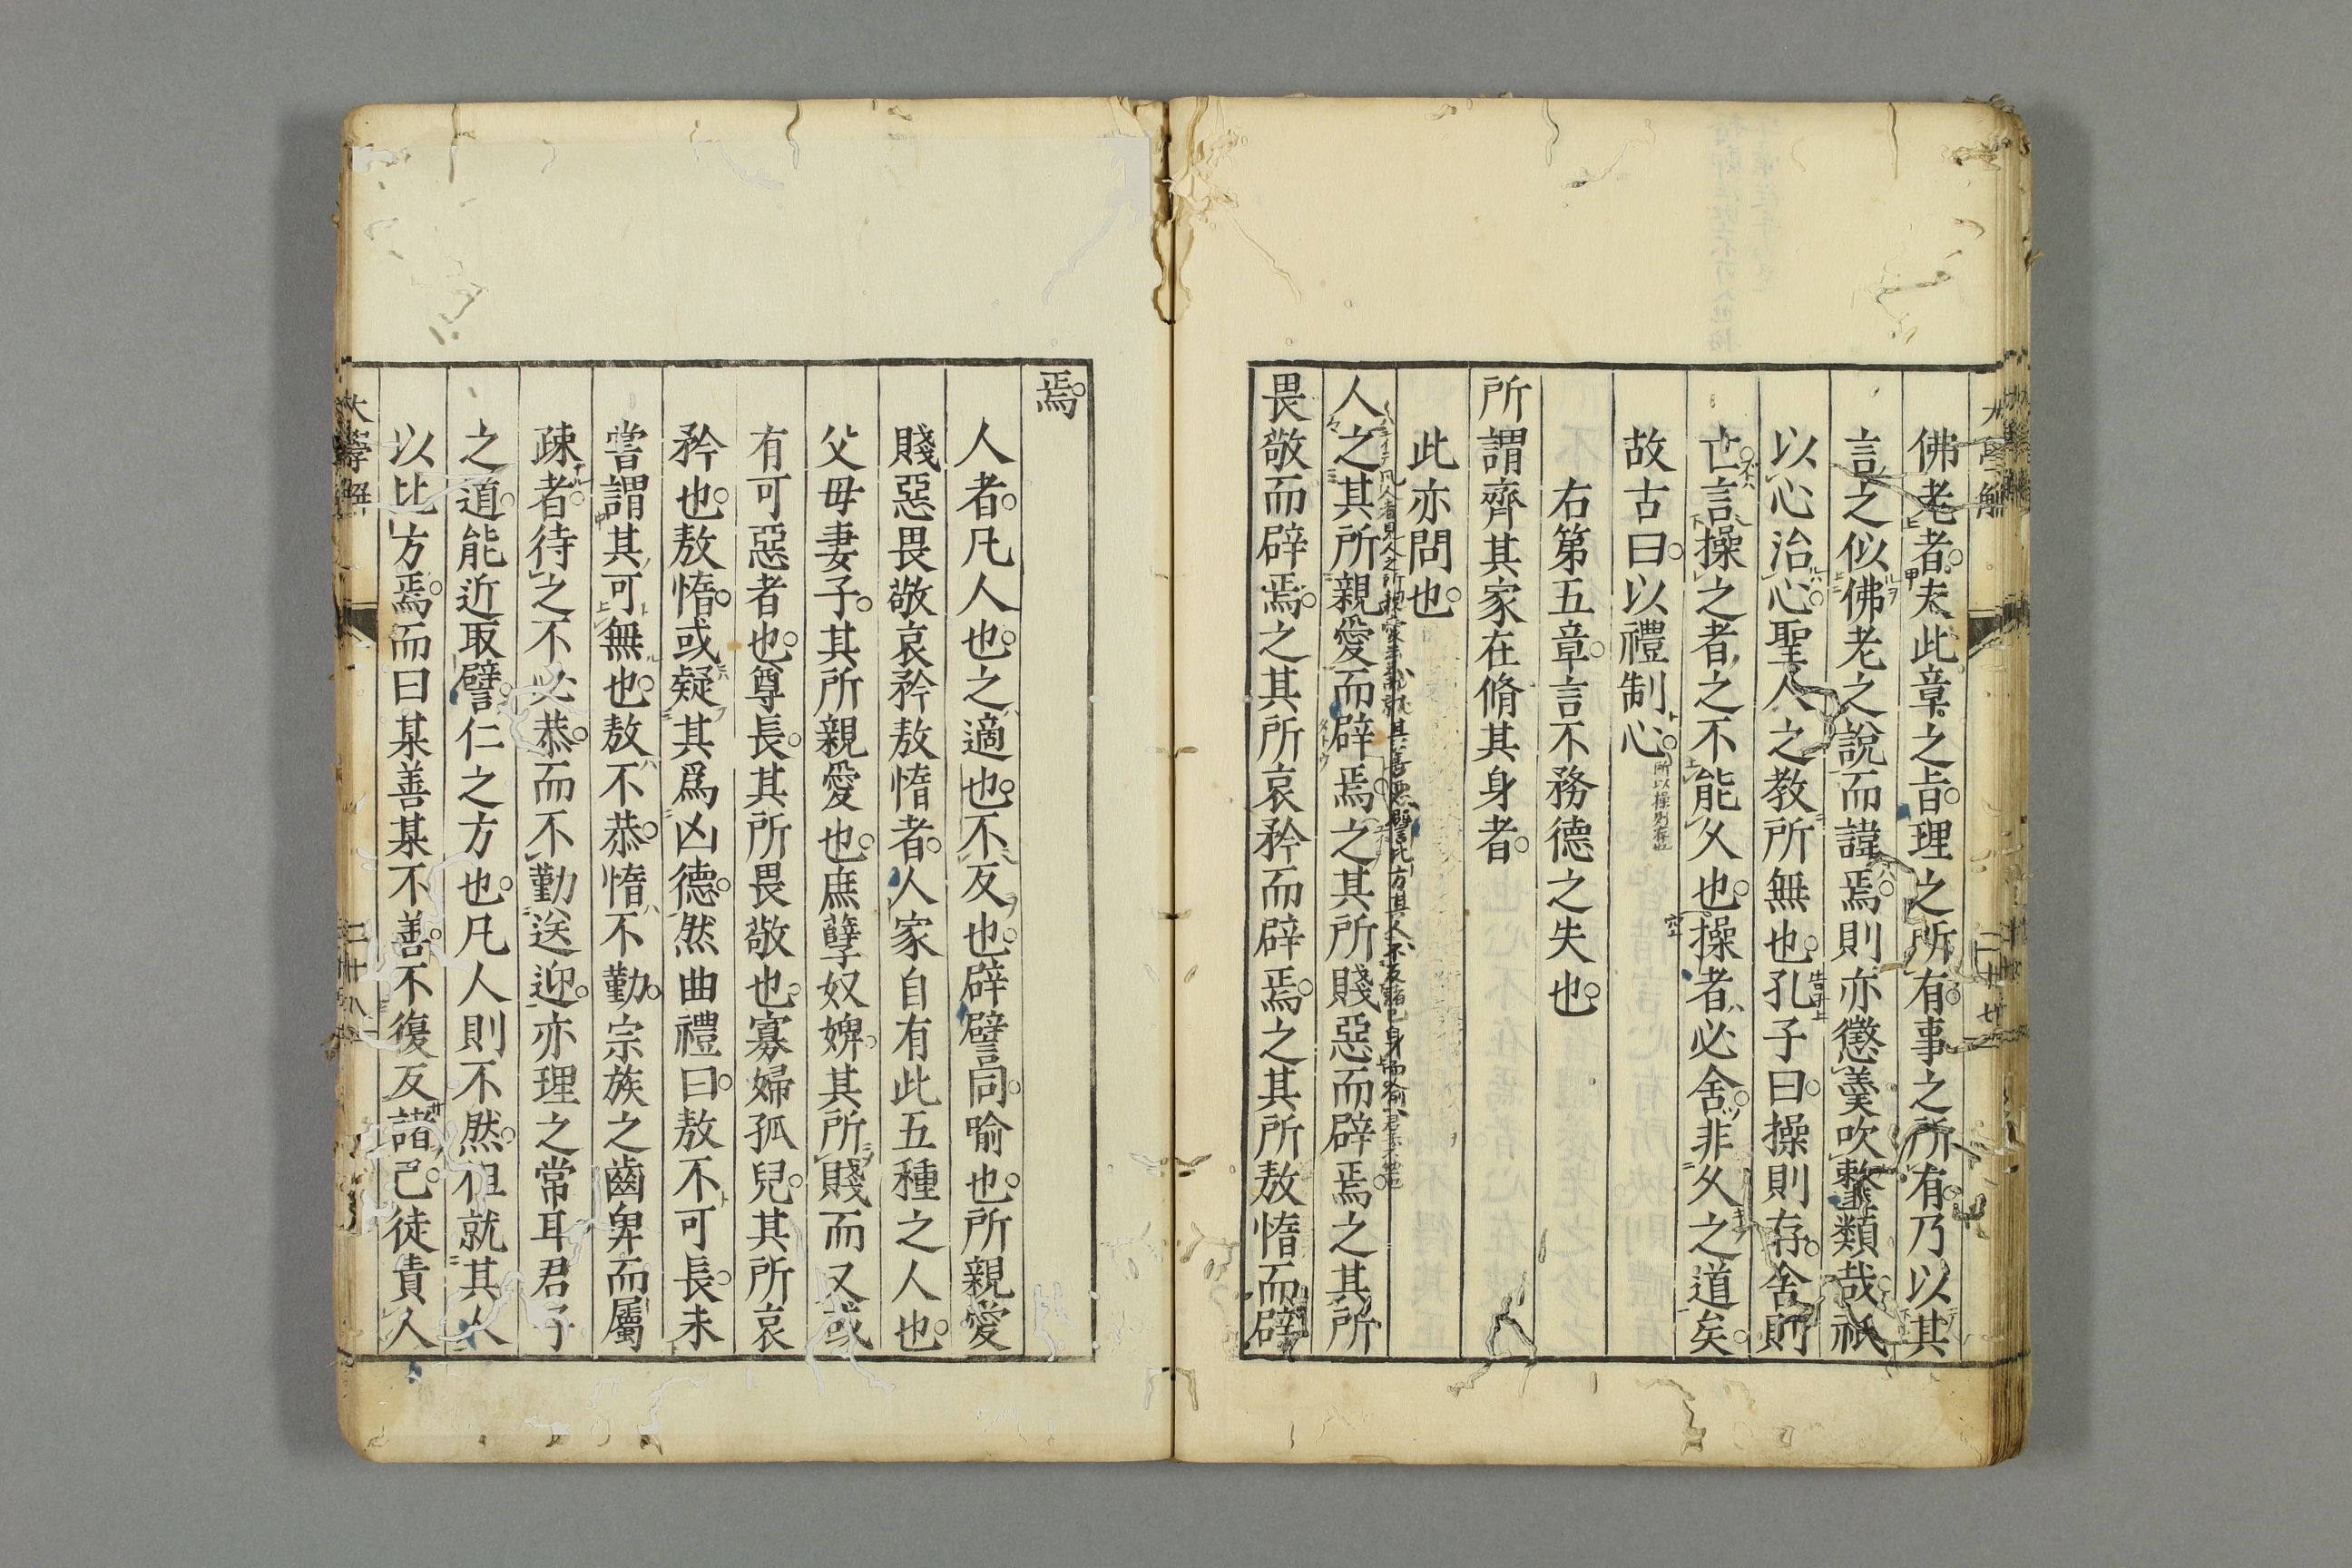 佛老者夫此章之旨理之所有事之所有乃以其
言之似佛老之說而諱焉則亦懲羹吹韲類哉祇
以心治心聖人之教所無也孔子曰操則存舍則
亡言操之者之不能久也操者必舍非久之道矣
故古曰以禮制心
右第五章言不務德之失也
所謂齊其家在脩其身者
此亦問也
人之其所親愛而辟焉之其所賤惡而辟焉之其所
畏敬而辟焉之其所哀矜而辟焉之其所敖惰而辟
焉
人者凡人也之適也不反也辟譬同喻也所親愛
賤惡畏敬哀矜敖惰者人家自有此五種之人也
父母妻子其所親愛也庶孽奴婢其所賤而又或
有可惡者也尊長其所畏敬也寡婦孤兒其所哀
矜也敖惰或疑其爲凶德然曲禮曰敖不可長未
嘗謂其可無也敖不恭惰不勤宗族之齒卑而屬
疎者待之不必恭而不勤送迎亦理之常耳君子
之道能近取譬仁之方也凡人則不然徂就其人
以比方焉而曰某善某不善不復反諸己徒責人
大學解
二十八